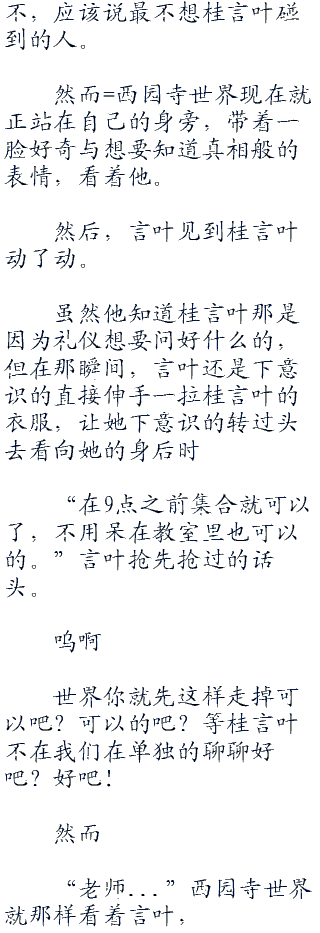 不，应该说最不想桂言叶碰
到的人。
然而=西园寺世界现在就
正站在自己的身旁，带着一
脸好奇与想要知道真相般的
表情，看着他。
然后，言叶见到桂言叶
动了动。
虽然他知道桂言叶那是
因为礼仪想要问好什么的，
但在那瞬间，言叶还是下意
识的直接伸手一拉桂言叶的
衣服，让她下意识的转过头
去看向她的身后时
“在9点之前集合就可以
了，不用呆在教室里也可以
的。”言叶抢先抢过的话
头。
呜啊
世界你就先这样走掉可
以吧？可以的吧？等桂言叶
不在我们在单独的聊聊好
吧？好吧！
然而
“老师...”西园寺世界
就那样看着言叶，